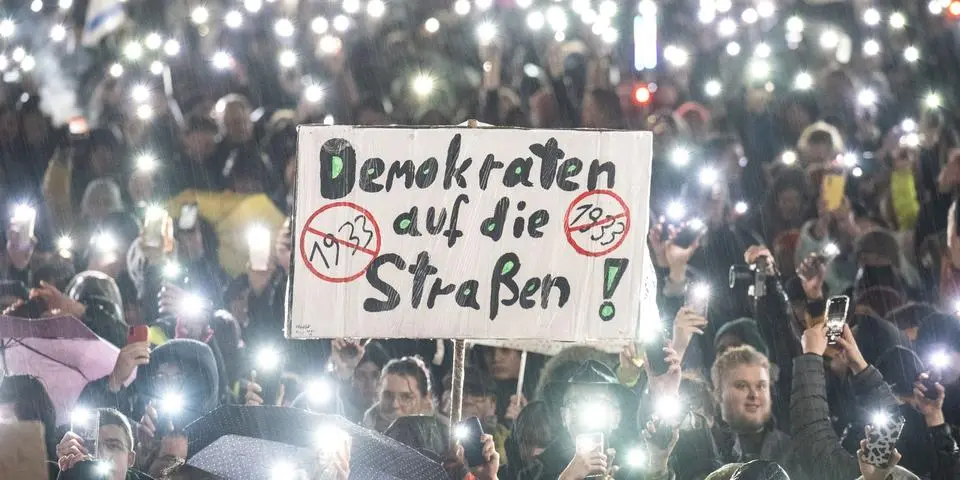 Demokraten
1933 auf die 1933
Straßen!